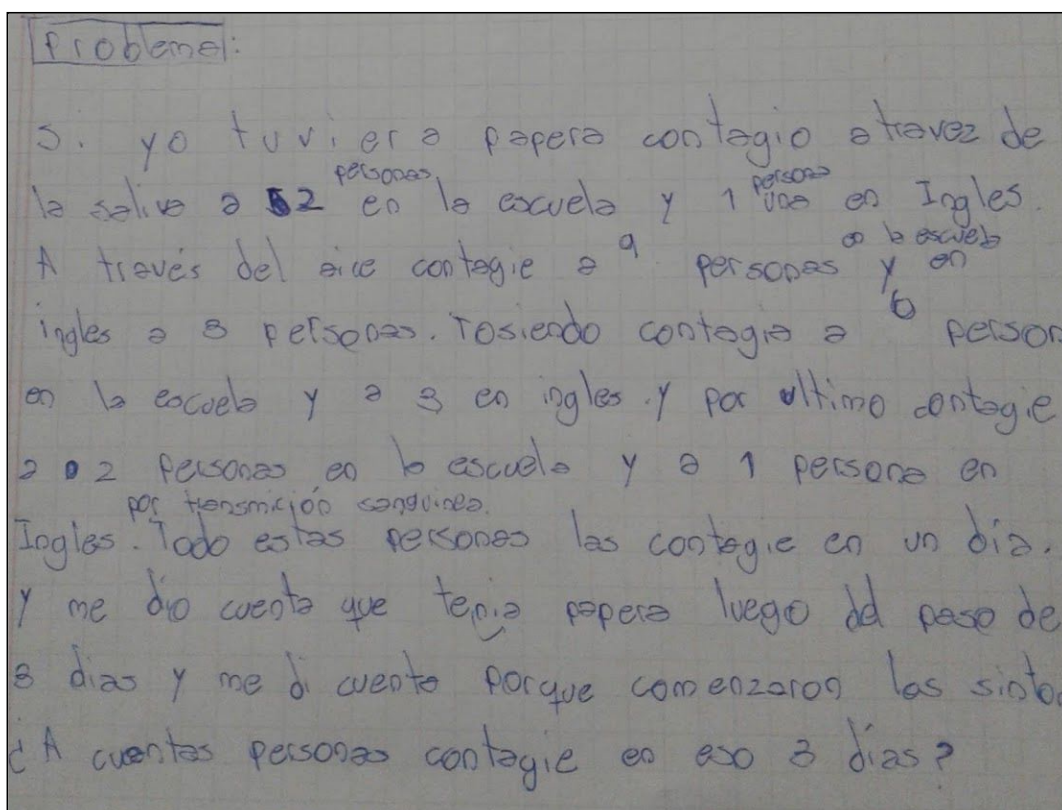 Problema:
Si yo tuviera papera contagio atravez de
la saliva a 2 personas en la escuela y 1 persona una en Ingles.
A través del aire contagie a 9 personas en la escuela y en
ingles a 3 personas. Tosiendo contagie a 6 person
en la escuela y a 3 en ingles. y por ultimo contagie
a 2 personas en la escuela y a 1 persona en
Ingles por transmición sanguinea. Todo estas personas las contagie en un día.
Y me dio cuenta que tenia papera luego del paso de
3 dias y me di cuenta porque comenzaron las sinto
¿A cuentas personas contagie en eso 3 días?